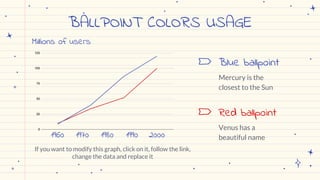 BALLPOINT COLORS USAGE
Millions of users
1960 1970 1980 1990 2000
If you want to modify this graph, click on it, follow the link,
change the data and replace it
Blue ballpoint
Mercury is the
closest to the Sun
Red ballpoint
Venus has a
beautiful name